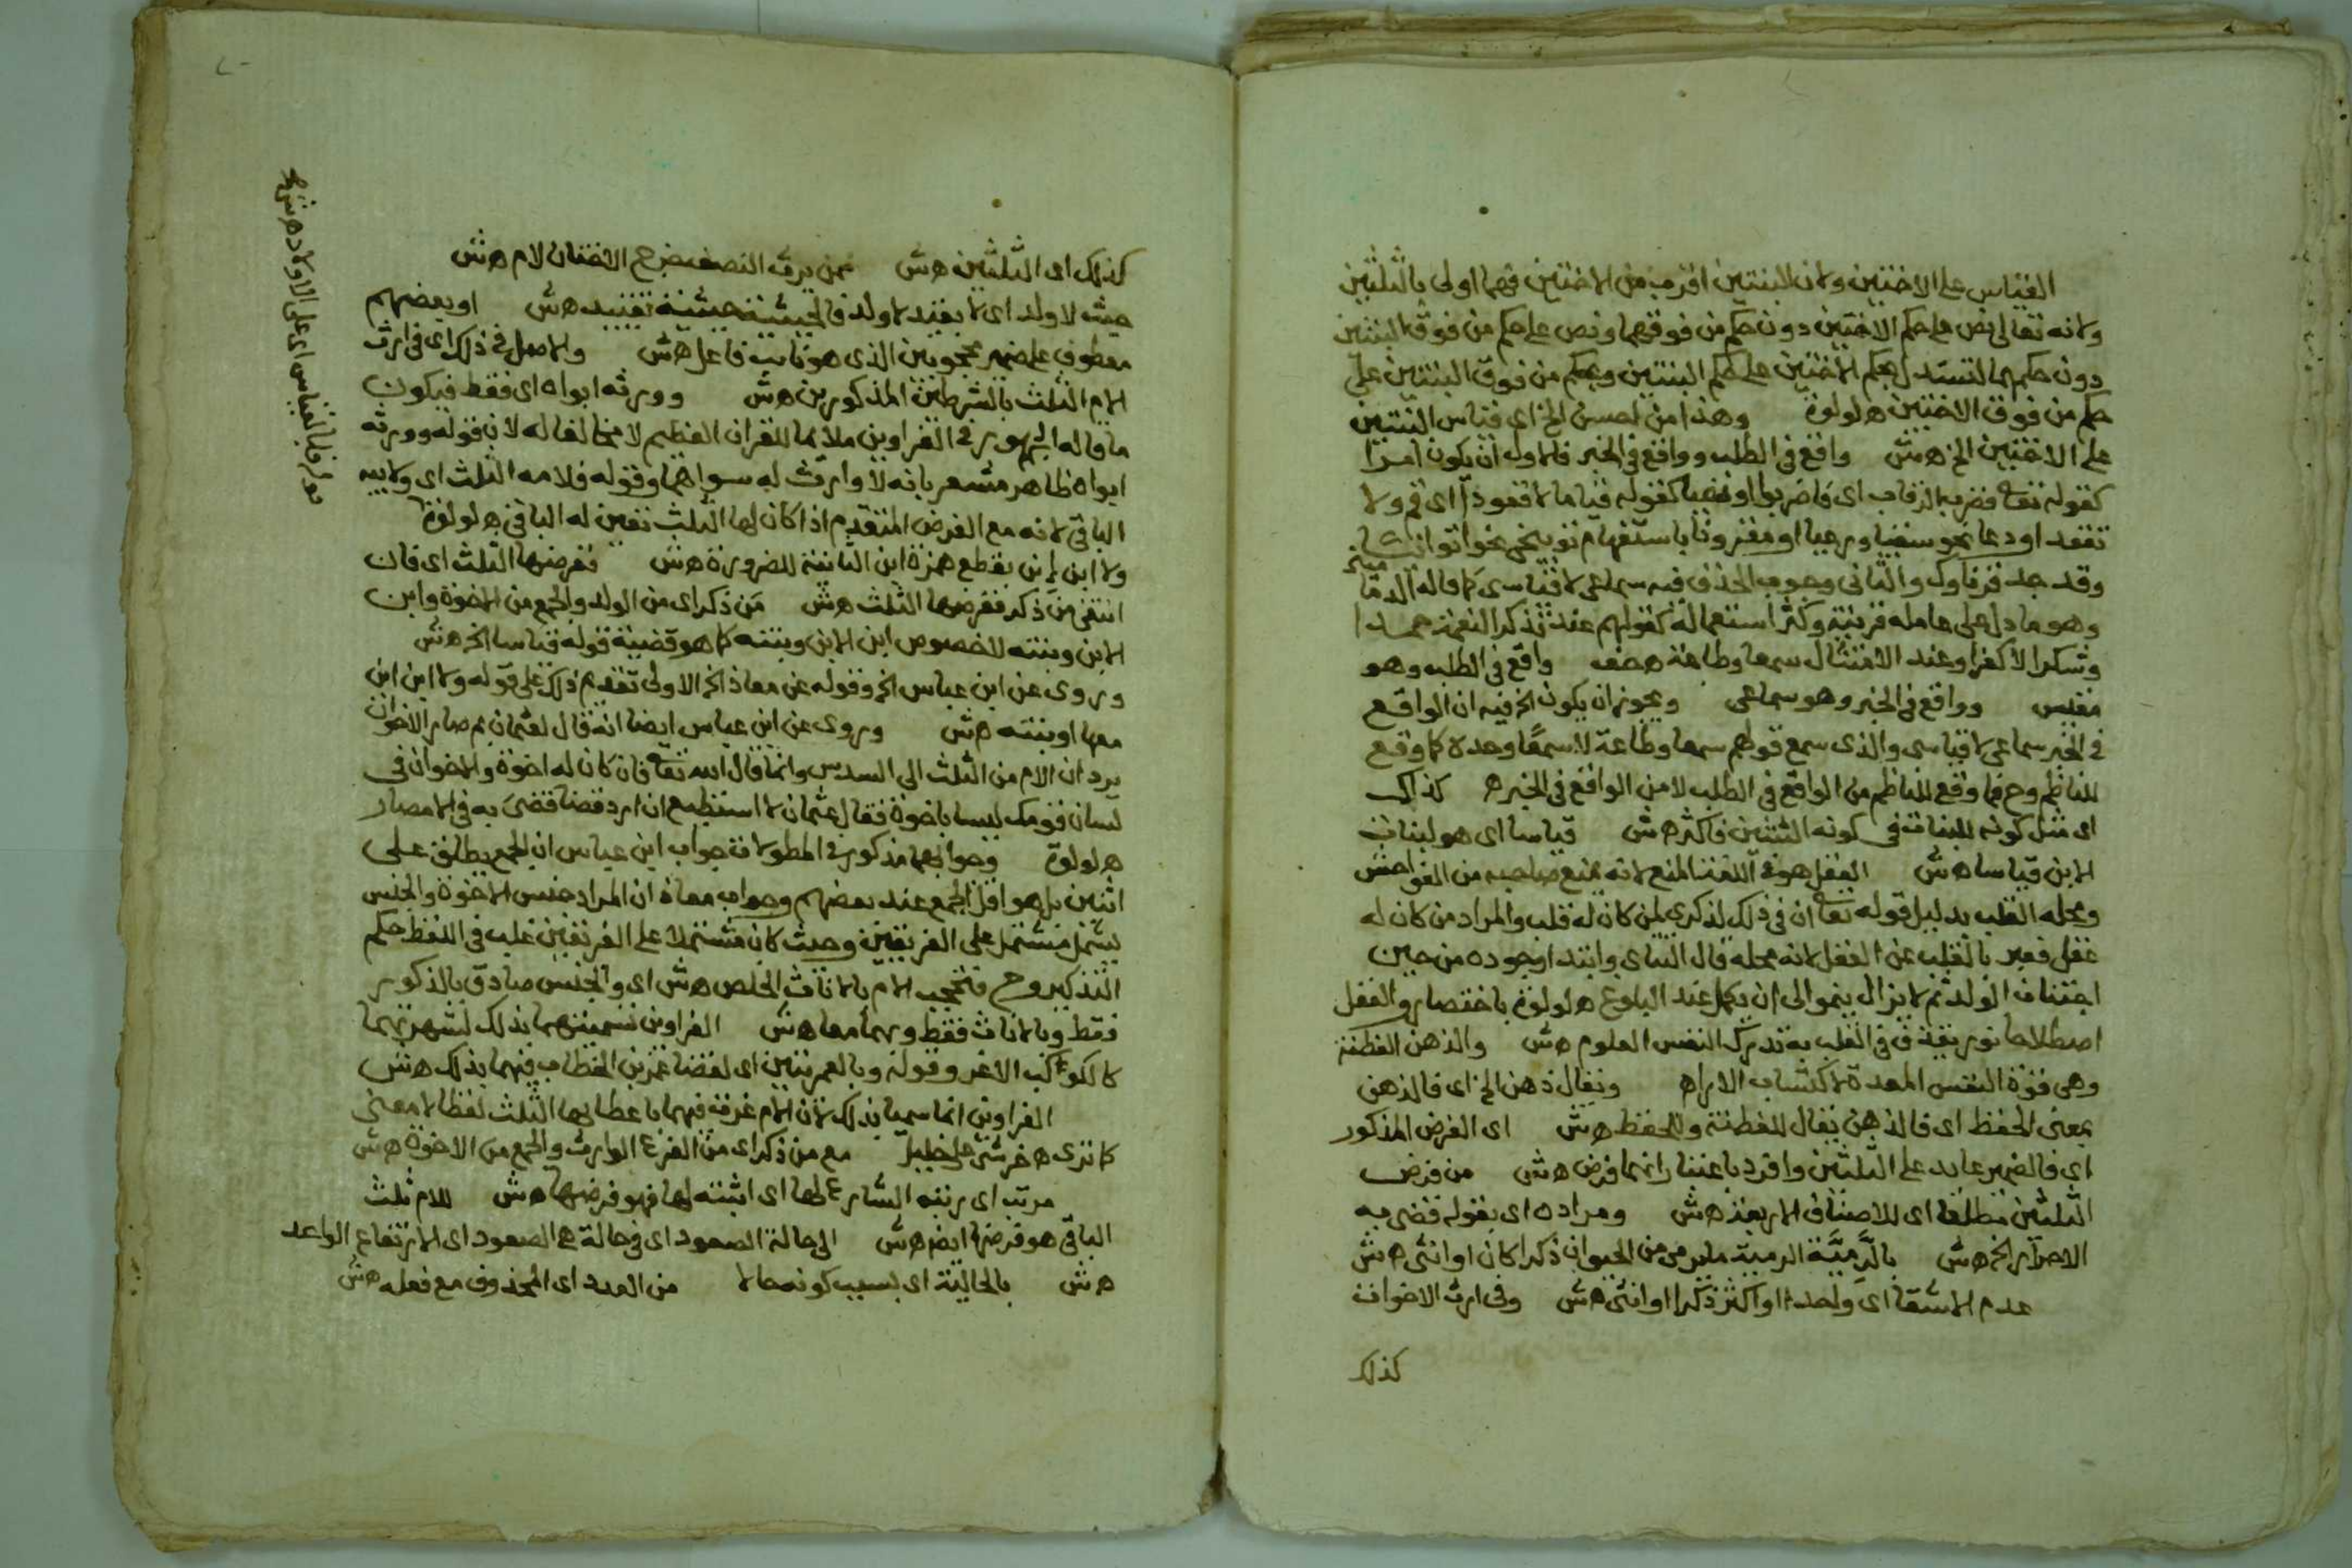 القياس على الاختين ولان البنتين اقرب من الاختين فهما اولى بالثلثين
ولانه تعالى نص على حكم الاختين دون حكم من فوقهما ونص على حكم من فوق البنتين
دون حكمهما لنستدل بحكم الاختين على حكم البنتين وبحكم من فوق البنتين على
حكم من فوق الاختين ه لولوة وهذا من احسن الخ اى قياس البنتين
على الاختين الخ ه ش واقع فى الطلب وواقع فى الخبر فالاول ان يكون امرا
كقوله تعا فضرب الرقاب اى فاضربوا او نهيا كقوله قياما لا قعودا اى قم ولا
تقعد او دعا نحو سقيا ورعيا او مقرونا باستفهام توبيخى نحو اتوانيا
وقد جد قرناوك والثانى وجوب الحذف فيه سماعى لا قياسى كما قاله الدمامينى
وهو ما دل على عامله قرينة وكثر استعماله كقولهم عند تذكر النعمة حمدا
وشكرا لا كفرا وعند الامتثال سمعا وطاعة ه حف واقع فى الطلب وهو
مقيس وواقع فى الخبر وهو سماعى ويجوز ان يكون الخ فيه ان الواقع
فى الخبر سماعى لا قياسى والذى سمع قولهم سمعا وطاعة لا سمعا وحده كما وقع
للناظم وح فما وقع للناظم من الواقع فى الطلب لا من الواقع فى الخبر ه كذاك
اى مثل كونه للبنات فى كونه الثنتين فاكثر ه ش قياسا اى هو لبنات
الابن قياسا ه ش العقل هو لغة المنع لانه يمنع صاحبه من الفواحش
ومحله القلب بدليل قوله تعا ان فى ذلك لذكرى لمن كان له قلب والمراد من كان له
عقل فعبر بالقلب عن العقل لانه محله قال التتاى وابتدا وجوده من حين
اجتنان الولد ثم لا يزال ينمو الى ان يكمل عند البلوغ ه لولوة باختصار والعقل
اصطلاحا نور يقذف فى القلب به تدرك النفس العلوم ه ش والذهن الفطنة
وهى قوة النفس المعدة لاكتساب الاراء ويقال ذهن الخ اى فالذهن
بمعنى الحفظ اى فالذهن يقال للفطنة وللحفظ ه ش اى الفرض المذكور
اى فالضمير عايد على الثلثين وافرد باعتبار انهما فرض ه ش من فرض
الثلثين مطلقا اى للاصناف الاربعة ه ش ومراده اى بقوله قضى به
الاحرار الخ ه ش بالرمية الرمية ما يرمى من الحيوان ذكرا كان او انثى ه ش
عدم الاشقا اى واحدا او اكثر ذكرا او انثى ه ش وفى ارث الاخوات
كذلك
كذلك اى الثلثين ه ش ممن يرث النصف خرج الاختان لام ه ش
حيث لا ولد اى لا بقيد لا ولد فالحيثية حيثية تقييد ه ش او بعضهم
معطوف على ضمير محجوبين الذى هو نايب فاعل ه ش والاصل فى ذلك اى فى ارث
الام الثلث بالشرطين المذكورين ه ش وورثه ابواه اى فقط فيكون
ما قاله الجمهور فى الغراوين ملايما للقران العظيم لا مخالفا له لان قوله وورثه
ابواه ظاهر مشعر بانه لا وارث له سواهما وقوله فلامه الثلث اى ولابيه
الباقى لانه مع الفرض المتقدم اذا كان لها الثلث تعين له الباقى ه لولوة
ولا ابن ابن بقطع همزة ابن الثانية للضرورة ه ش ففرضها الثلث اى فان
انتفى من ذكر ففرضها الثلث ه ش من ذكر اى من الولد والجمع من الاخوة وابن
الابن وبنته لا خصوص ابن الابن وبنته كما هو قضية قوله قياسا الخ ه ش
وروى عن ابن عباس الخ وقوله عن معاذ الخ الاولى تقديم ذلك على قوله ولا ابن ابن
معها او بنته ه ش وروى عن ابن عباس ايضا انه قال لعثمان بم صار الاخوان
يردان الام من الثلث الى السدس وانما قال الله تعا فان كان له اخوة والاخوان فى
لسان قومك ليسا باخوة فقال عثمان لا استطيع ان ارد قضا قضى به فى الامصار
ه لولوة وجوابهما مذكور فى المطولات جواب ابن عباس ان الجمع يطلق على
اثنين بل هو اقل الجمع عند بعضهم وجواب معاذ ان المراد جنس الاخوة والجنس
يشمل مشتمل على الفريقين وحيث كان مشتملا على الفريقين غلب فى اللفظ حكم
التذكير وح فتحجب الام بالاناث الخلص ه ش اى والجنس صادق بالذكور
فقط وبالاناث فقط وبهما معا ه ش الغراوين تسميتهما بذلك لشهرتهما
كالكوكب الاغر وقوله وبالعمريتين اى لقضا عمر بن الخطاب فيهما بذلك ه ش
الغراوين انما سميا بذلك لان الام غرت فيهما باعطايها الثلث لفظا لا معنى
كما ترى ه خرشى على خليل مع من ذكر اى من الفرع الوارث والجمع من الاخوة ه ش
مرتب اى رتبه الشارع لها اى اثبته لها فهو فرضها ه ش للام ثلث
الباقى هو فرضها ايض ه ش الى حالة الصعود اى فى حالة هى الصعود اى الارتفاع الواحد
ه ش بالحالية اى بسبب كونه حالا من العدد اى المحذوف مع فعله ه ش
قوله قياسا القياس اى على الاولاد ه ش